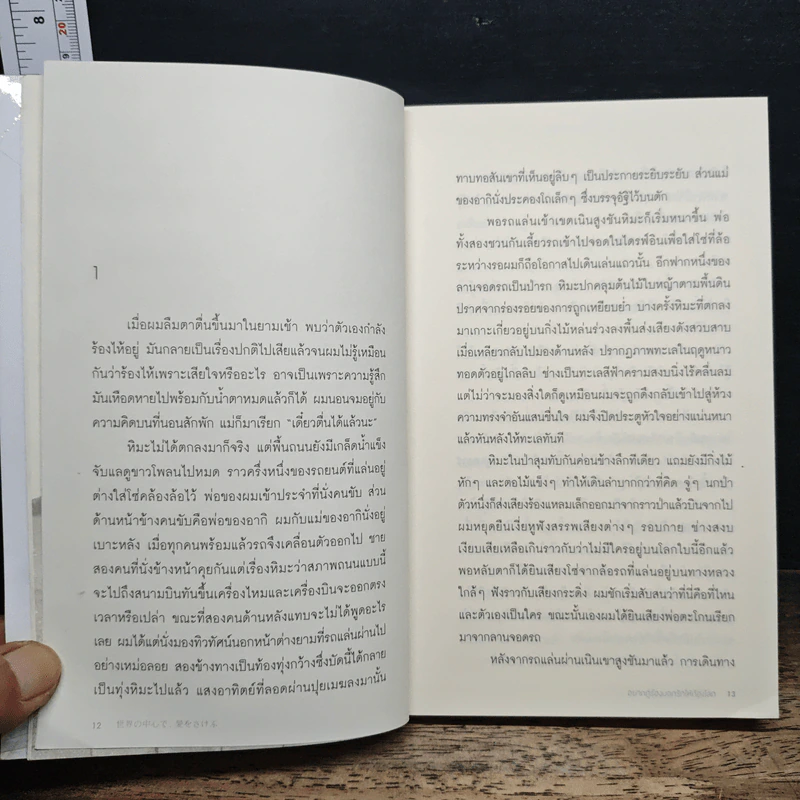 8
20
1
เมื่อผมลืมตาตื่นขึ้นมาในยามเช้า พบว่าตัวเองกำลัง
ร้องไห้อยู่ มันกลายเป็นเรื่องปกติไปเสียแล้วจนผมไม่รู้เหมือน
กันว่าร้องไห้เพราะเสียใจหรืออะไร อาจเป็นเพราะความรู้สึก
มันเหือดหายไปพร้อมกับน้ำตาหมดแล้วก็ได้ ผมนอนจมอยู่กับ
ความคิดบนที่นอนสักพัก แม่ก็มาเรียก "เดี๋ยวตื่นได้แล้วนะ"
หิมะไม่ได้ตกลงมาก็จริง แต่พื้นถนนยังมีเกล็ดน้ำแข็ง
จับแลดูขาวโพลนไปหมด ราวครึ่งหนึ่งของรถยนต์ที่แล่นอยู่
ต่างใส่โซ่คล้องล้อไว้ พ่อของผมเข้าประจำที่นั่งคนขับ ส่วน
ด้านหน้าข้างคนขับคือพ่อของอากิ ผมกับแม่ของอากินั่งอยู่
เบาะหลัง เมื่อทุกคนพร้อมแล้วรถจึงเคลื่อนตัวออกไป ชาย
สองคนที่นั่งข้างหน้าคุยกันแต่เรื่องหิมะว่าสภาพถนนแบบนี้
จะไปถึงสนามบินทันขึ้นเครื่องไหมและเครื่องบินจะออกตรง
เวลาหรือเปล่า ขณะที่สองคนด้านหลังแทบจะไม่ได้พูดอะไร
เลย ผมได้แต่นั่งมองทิวทัศน์นอกหน้าต่างยามที่รถแล่นผ่านไป
อย่างเหม่อลอย สองข้างทางเป็นท้องทุ่งกว้างซึ่งบัดนี้ได้กลาย
เป็นทุ่งหิมะไปแล้ว แสงอาทิตย์ที่ลอดผ่านปุยเมฆลงมานั้น
12 世界の中心で、愛をさけぶ
ทาบทอสันเขาที่เห็นอยู่ลิบๆ เป็นประกายระยิบระยับ ส่วนแม่
ของอากินั่งประคองโถเล็กๆ ซึ่งบรรจุอัฐิไว้บนตัก
พอรถแล่นเข้าเขตเนินสูงชันหิมะก็เริ่มหนาขึ้น พ่อ
ทั้งสองชวนกันเลี้ยวรถเข้าไปจอดในไดรฟ์อินเพื่อใส่โซ่ที่ล้อ
ระหว่างรอผมก็ถือโอกาสไปเดินเล่นแถวนั้น อีกฟากหนึ่งของ
ลานจอดรถเป็นป่ารก หิมะปกคลุมต้นไม้ใบหญ้าตามพื้นดิน
ปราศจากร่องรอยของการถูกเหยียบย่ำ บางครั้งหิมะที่ตกลง
มาเกาะเกี่ยวอยู่บนกิ่งไม้หล่นร่วงลงพื้นส่งเสียงดังสวบสาบ
เมื่อเหลียวกลับไปมองด้านหลัง ปรากฏภาพทะเลในฤดูหนาว
ทอดตัวอยู่ไกลลิบ ช่างเป็นทะเลสีฟ้าครามสงบนิ่งไร้คลื่นลม
แต่ไม่ว่าจะมองสิ่งใดก็ดูเหมือนผมจะถูกดึงกลับเข้าไปสู่ห้วง
ความทรงจำอันแสนชื่นใจ ผมจึงปิดประตูหัวใจอย่างแน่นหนา
แล้วหันหลังให้ทะเลทันที
หิมะในป่าสุมทับกันค่อนข้างลึกทีเดียว แถมยังมีกิ่งไม้
หักๆ และตอไม้แข็งๆ ทำให้เดินลำบากกว่าที่คิด จู่ๆ นกป่า
ตัวหนึ่งก็ส่งเสียงร้องแหลมเล็กออกมาจากราวป่าแล้วบินจากไป
ผมหยุดยืนเงี่ยหูฟังสรรพเสียงต่างๆ รอบกาย ช่างสงบ
เงียบเสียเหลือเกินราวกับว่าไม่มีใครอยู่บนโลกใบนี้อีกแล้ว
พอหลับตาก็ได้ยินเสียงโซ่จากล้อรถที่แล่นอยู่บนทางหลวง
ใกล้ๆ ฟังราวกับเสียงกระดิ่ง ผมชักเริ่มสับสนว่าที่นี่คือที่ไหน
และตัวเองเป็นใคร ขณะนั้นเองผมได้ยินเสียงพ่อตะโกนเรียก
มาจากลานจอดรถ
หลังจากรถแล่นผ่านเนินเขาสูงชันมาแล้ว การเดินทาง
13